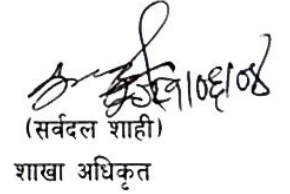 (सर्वदल शाही)
शाखा अधिकृत